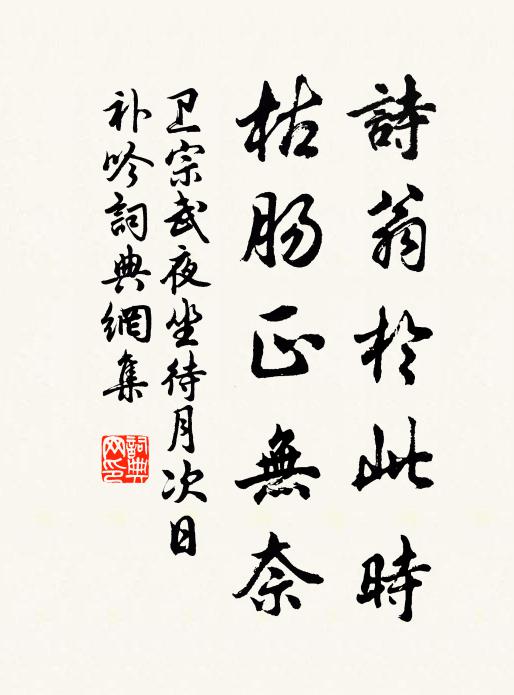 詩翁於此時
枯肠正無奈
卫宗武夜坐待月次日
补吟詞典網集
詞典网印